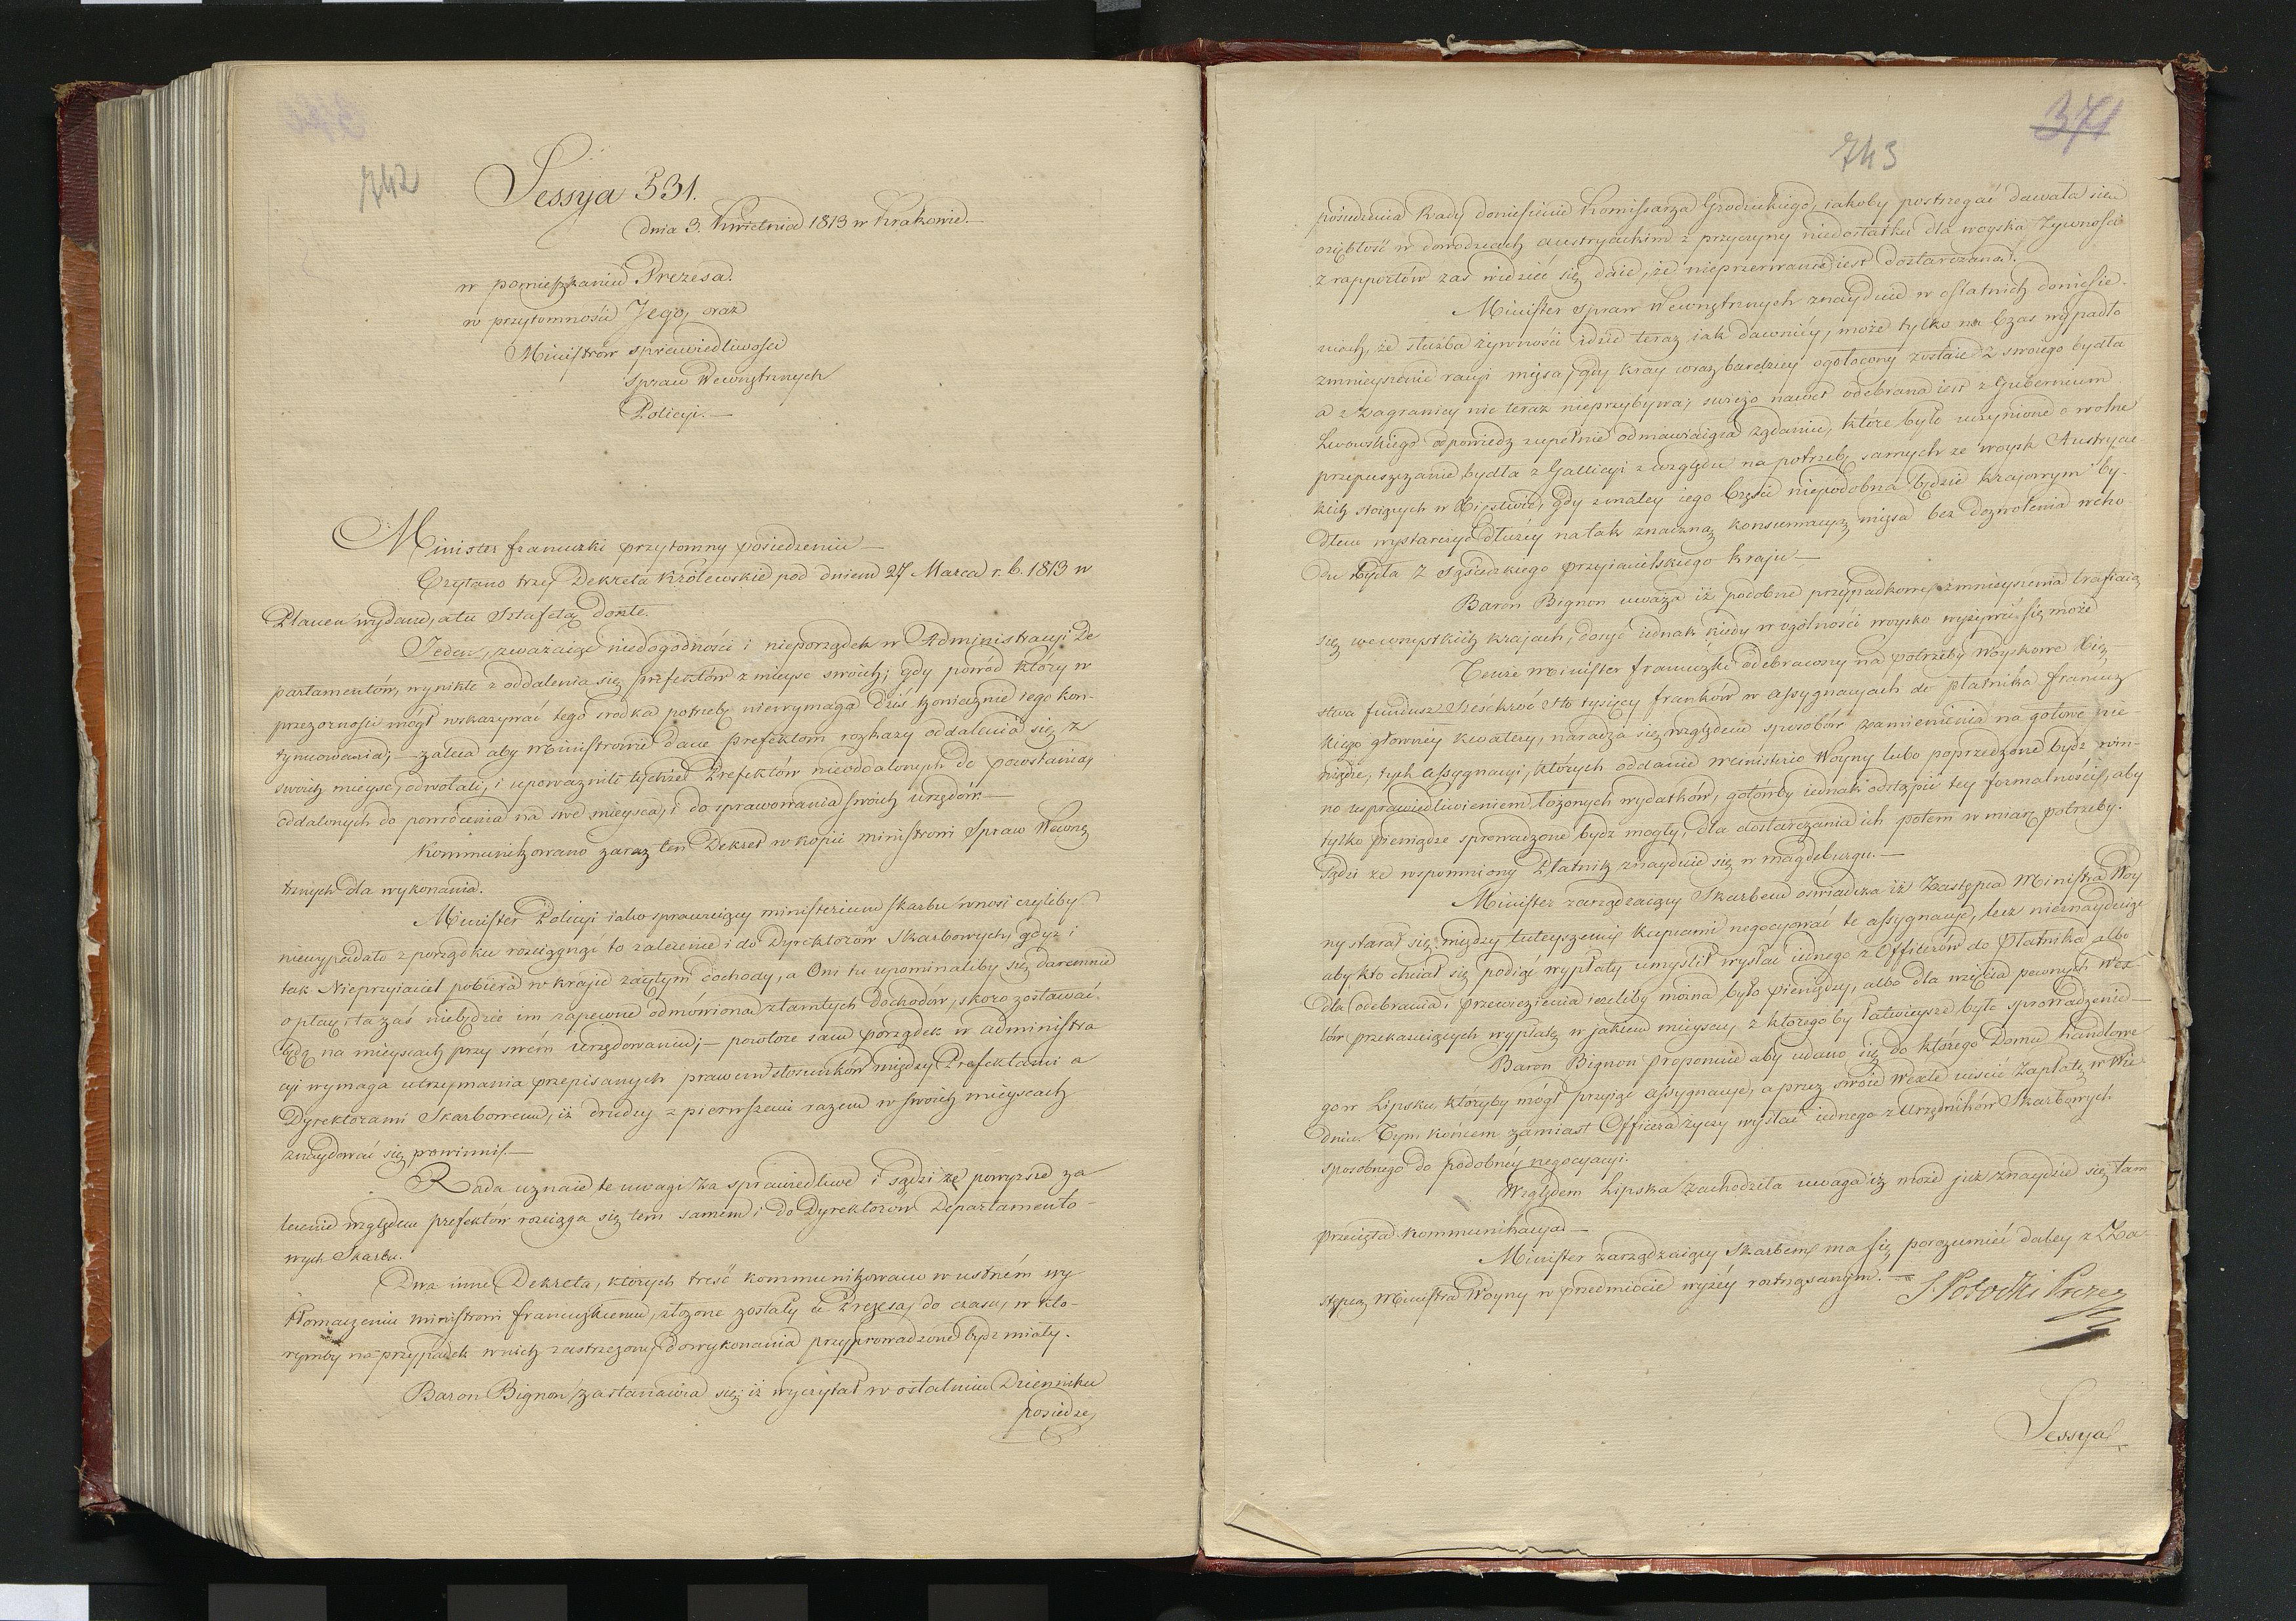 742
Sessyja 531.
dnia 3. Kwietnia 1813 w Krakowie.—
w pomieszkaniu Prezesa.
w przytomności Jego, oraz
Ministrów sprawiedliwości
Spraw Wewnętrznych
Policyi.—
Minister francuzki przytomny posiedzeniu—
Czytano trzy Dekreta Królewskie pod dniem 27 Marca r. b. 1813 w
Plauen wydane, a tu Sztafetą doszłe.
Jeden, zważaiąc niedogodności i nieporządek w Administracyi De
partamentów, wynikłe z oddalenia się prefektów z mieysc swoich; gdy powód który w
przezorności mógł wskazywać tego srodka potrzebę niewymaga dziś koniecznie iego kon-
tynuowania;— zaleca aby Ministrowie dane prefektom rozkazy oddalenia się z
swoich mieysc, odwołali, i upoważnili tychże Prefektów nieoddalonych do pozostania,
oddalonych do powrócenia na swe mieysca, i do sprawowania swoich urzędów.—
Kommunikowano zaraz ten Dekret w kopii ministrowi Spraw Wewnę
trznych dla wykonania.
Minister Policyi iako sprawuiący ministerium skarbu wnosi czyliby
niewypadało z porządku rozciągnąć to zalecenie i do Dyrektorów Skarbowych, gdyż i
tak Nieprzyiaciel pobiera w kraju zaiętym dochody, a Oni tu upominaliby się daremnie
o płacę, ta zaś niebędzie im zapewne odmówiona z tamtych dochodów, skoro zostawać
będą na mieyscach przy swém urzędowaniu;— powtóre sam porządek w administra
cyi wymaga utrzymania przepisanych prawem stosunków między Prefektami a
Dyrektorami Skarbowemi, iż drudzy z pierwszemi razem w swoich mieyscach
znaydować się powinni.—
Rada uznaie te uwagi za sprawiedliwe i sądzi że powyższe za
lecenie względem prefektów rozciąga się tem samem i do Dyrektorów Departamento-
wych Skarbu.
Dwa inne Dekreta, których treść kommunikowano w ustném wy
tłomaczeniu ministrowi francuzkiemu, złożone zostały u Prezesa, do czasu, w któ-
rymby na przypadek w nich zastrzeżony do wykonania przyprowadzone bydź miały.
Baron Bignon zastanawia się, iż wyczytał w ostatnim Dzienniku
posiedze,
371
743
posiedzenia Rady doniesienie Komissarza Grodzickiego, iakoby postrzegać dawała się
oziębłość w dowodzcach austryackim z przyczyny niedostatku dla woyska Żywności
z rapportów zas widzieć się daie, że nieprzerwanie iest dostarczana.
Minister Spraw Wewnętrznych znayduie w ostatnich doniesie-
niach, że służba żywności idzie teraz iak dawniéy, może tylko na Czas wypadło
zmnieyszenie racyi mięsa, gdy kray coraz bardziey ogołocony zostaie z swoiego bydła
a z zagranicy nic teraz nieprzybywa; swieżo nawet odebrana iest z Gubernium
Lwowskiego odpowiedz zupełnie odmawiaiąca żądaniu, które było uczynione o wolne
przepuszczanie bydła z Gallicyi z względu na potrzebę samych że woysk Austryac
kich stoiących w Xięstwie, gdy w małey iego Części niepodobna będzie krajowym by-
dłem wystarczyć dłużéy na tak znaczną konsumacyą mięsa bez dozwolenia wcho
du bydła z sąsiedzkiego przyiacielskiego kraju—
Baron Bignon uważa iż podobne przypadkowe zmnieyszenia trafiaią
się we wszystkich krajach, dosyć iednak kiedy w ogólności woysko wyżywić się może
Tenże Minister francuzki odebrawszy na potrzeby woyskowe Xię-
stwa fundusz sześćkroć sto tysięcy franków w assygnacyach do płatnika francuz
kiego głownéy kwatery, naradza się względem sposobów zamienienia na gotowe pie-
niądze, tych assygnacyi, których oddanie w ministerio Woyny lubo poprzedzone bydz win-
no usprawiedliwieniem łożonych wydatków, gotówby iednak odstąpić tey formalności, aby
tylko pieniądze sprowadzone bydz mogły, dla dostarczania ich potem w miarę potrzeby.
Sądzi że wspomniony Płatnik znayduie się w Magdeburgu.—
Minister zarządzaiący Skarbem oswiadcza iż Zastępca Ministra Woy
ny starał się między tuteyszemi kupcami negocyować te assygnacye, lecz nieznayduiąc
aby kto chciał się podiąć wypłaty umyślił wysłać iednego z Officerów do Płatnika albo
dla odebrania i przewiezienia ieżeliby można było pieniędzy, albo dla wzięcia pewnych Wex-
lów przekazuiących wypłatę w jakiem mieyscu, z którego by łatwieysze było sprowadzenie—
Baron Bignon proponuie aby udano się do którego Domu handlowe
go w Lipsku, któryby mógł przyiąć assygnacye, a przez swoie Wexle uiścić zapłatę w Wie
dniu. Tym końcem zamiast Officera życzy wysłać iednego z Urzędników Skarbowych
sposobnego do podobnéy negocyacyi.
Względem Lipska zachodziła uwaga iż może już znaydzie się tam
przecięta kommunikacya—
Minister zarządzaiący Skarbem ma się porozumieć daley z Za-
stępcą Ministra Woyny w przedmiocie wyżéy roztrząsanym.—
S Potocki Prezes
Sessya